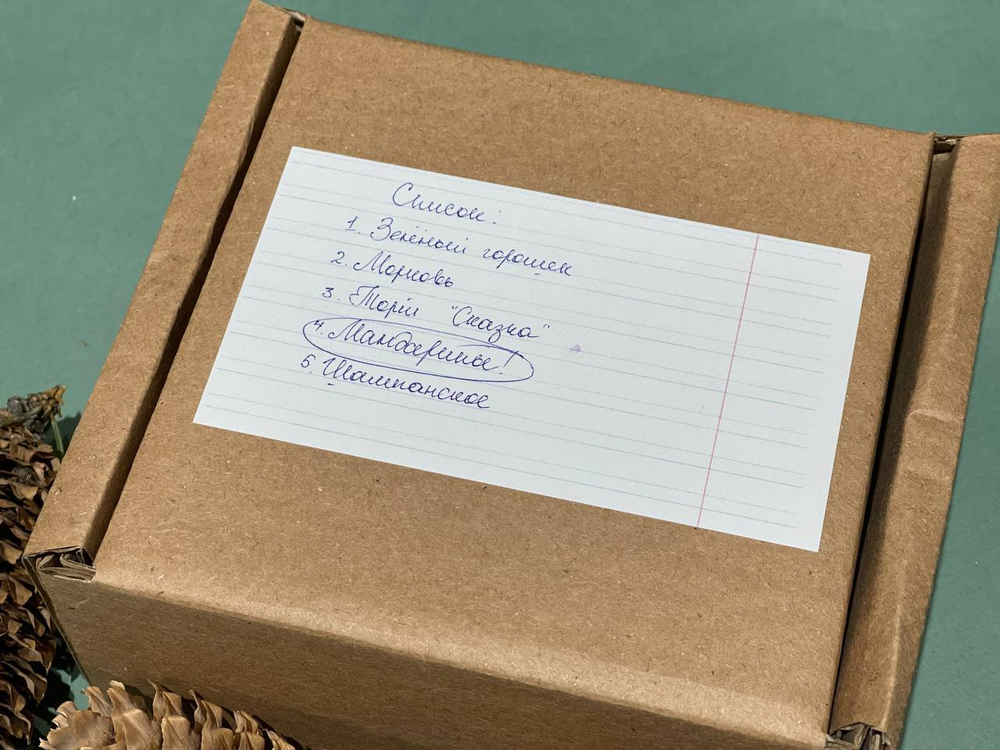 Список:
1. Зелёный горошек
2. Морковь
3. Торт "Сказка"
4. Мандарины!
5. Шампанское